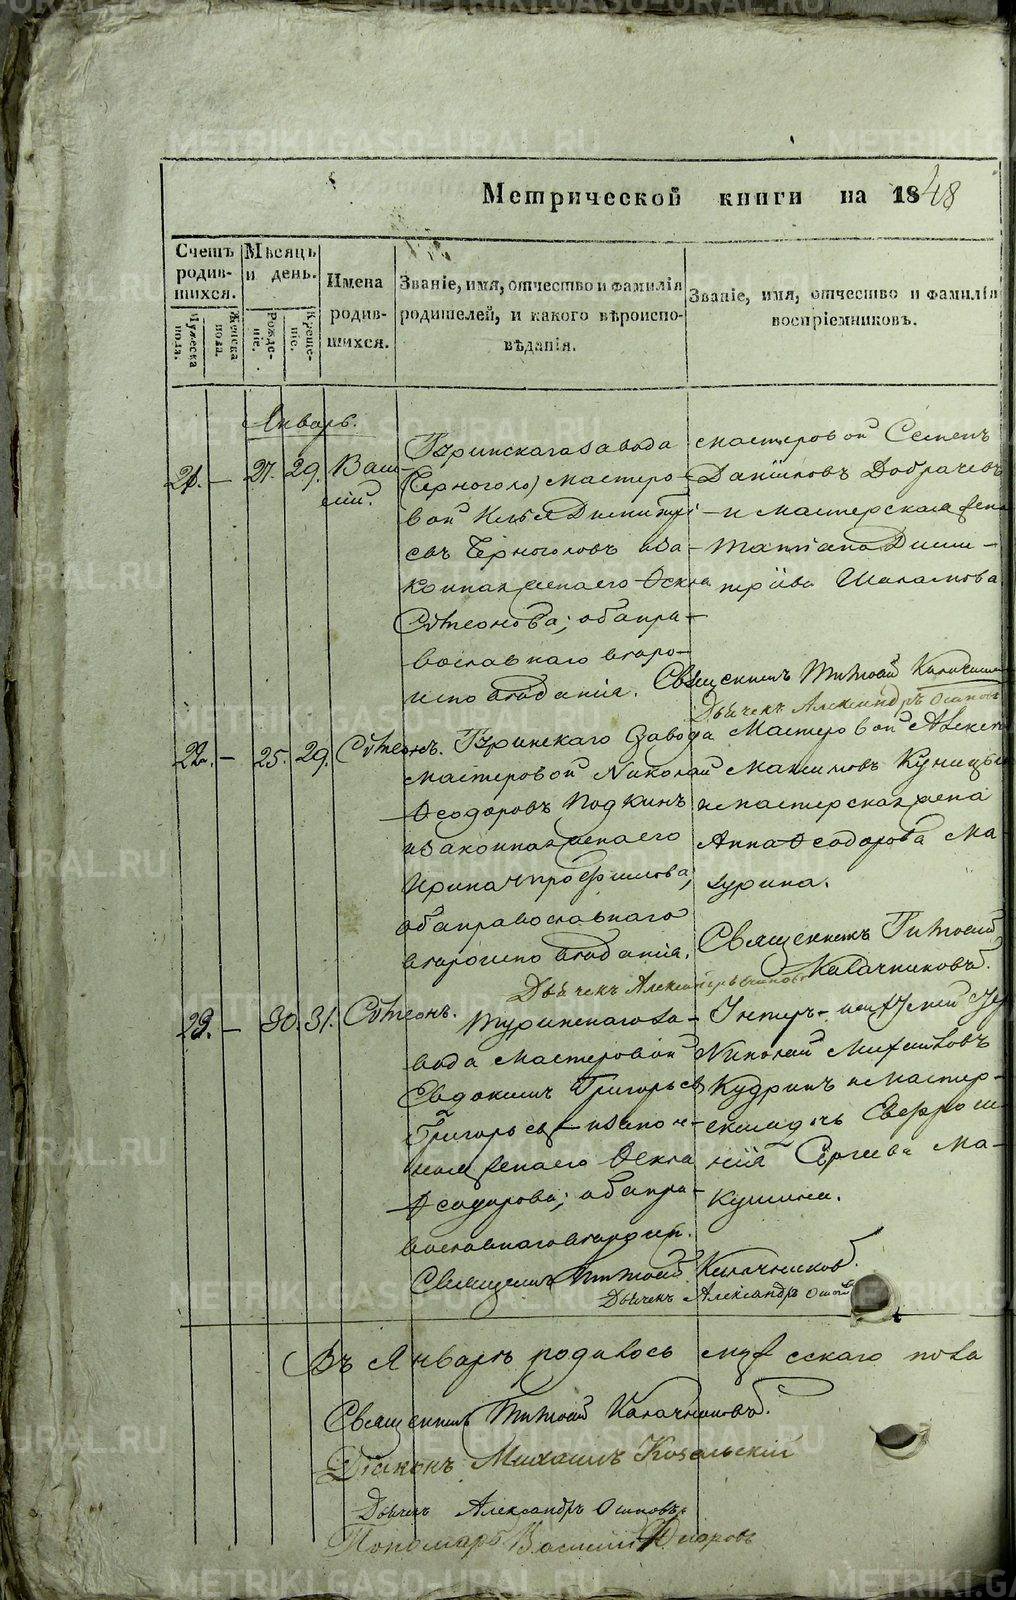 Метрической книги на 1848
Счетъ родившихся.
Мужеска пола.
Женска пола.
Мѣсяцъ и день.
Рожденіе.
Крещеніе.
Имена родившихся.
Званіе, имя, отчество и фамилія родишелей, и какого вѣроисповѣданія.
Званіе, имя, отчество и фамилія воспріемниковъ.
Январь.
21. — 27. 29. Василій.
Туринскаго завода
мастеро-
вой Илья Дмитрі-
евъ Черноголовъ и за-
конная жена его Ѳекла
Сѵмеонова; оба пра-
вославнаго вѣро-
исповѣданія.
мастеровой Семенъ
Даниловъ Добрачевъ
и мастерская жена
Татіана Дими-
тріева Шаламова
Священникъ Тимоѳей Калачников
Дьячекъ Александръ Осиповъ
22. — 25. 29. Сѵмеонъ.
Туринскаго завода
мастеровой Николай
Ѳеодоровъ Подкинъ
и законная жена его
Ирина
оба православнаго
вѣроисповѣданія.
Мастеровой Алексей
Максимовъ Куницын
и мастерская жена
Анна Ѳеодорова Ма-
зурина.
Священникъ Тимоѳей
Калачниковъ.
Дьячекъ Александръ Осиповъ
23. — 30. 31. Сѵмеонъ.
Туринскаго за-
вода мастеровой
Евдокимъ Григорьевъ
Григорьевъ и закон-
ная жена его Ѳекла
Ѳеодорова; оба пра-
вославнаго вѣроисп.
Унтеръ-
Николай Михаиловъ
Кудринъ и мастер-
ская дочь Евфроси-
нія Сергіева Ма-
кушина.
Священникъ Тимоѳей Калачников.
Дьячекъ Александръ Осиповъ
Въ Январѣ родилось мужескаго пола
Священникъ Тимоѳей Калачниковъ.
Діаконъ Михаилъ Козельскій
Дьячекъ Александръ Осиповъ
Пономарь Василій
METRIKI.GASO-URAL.RU